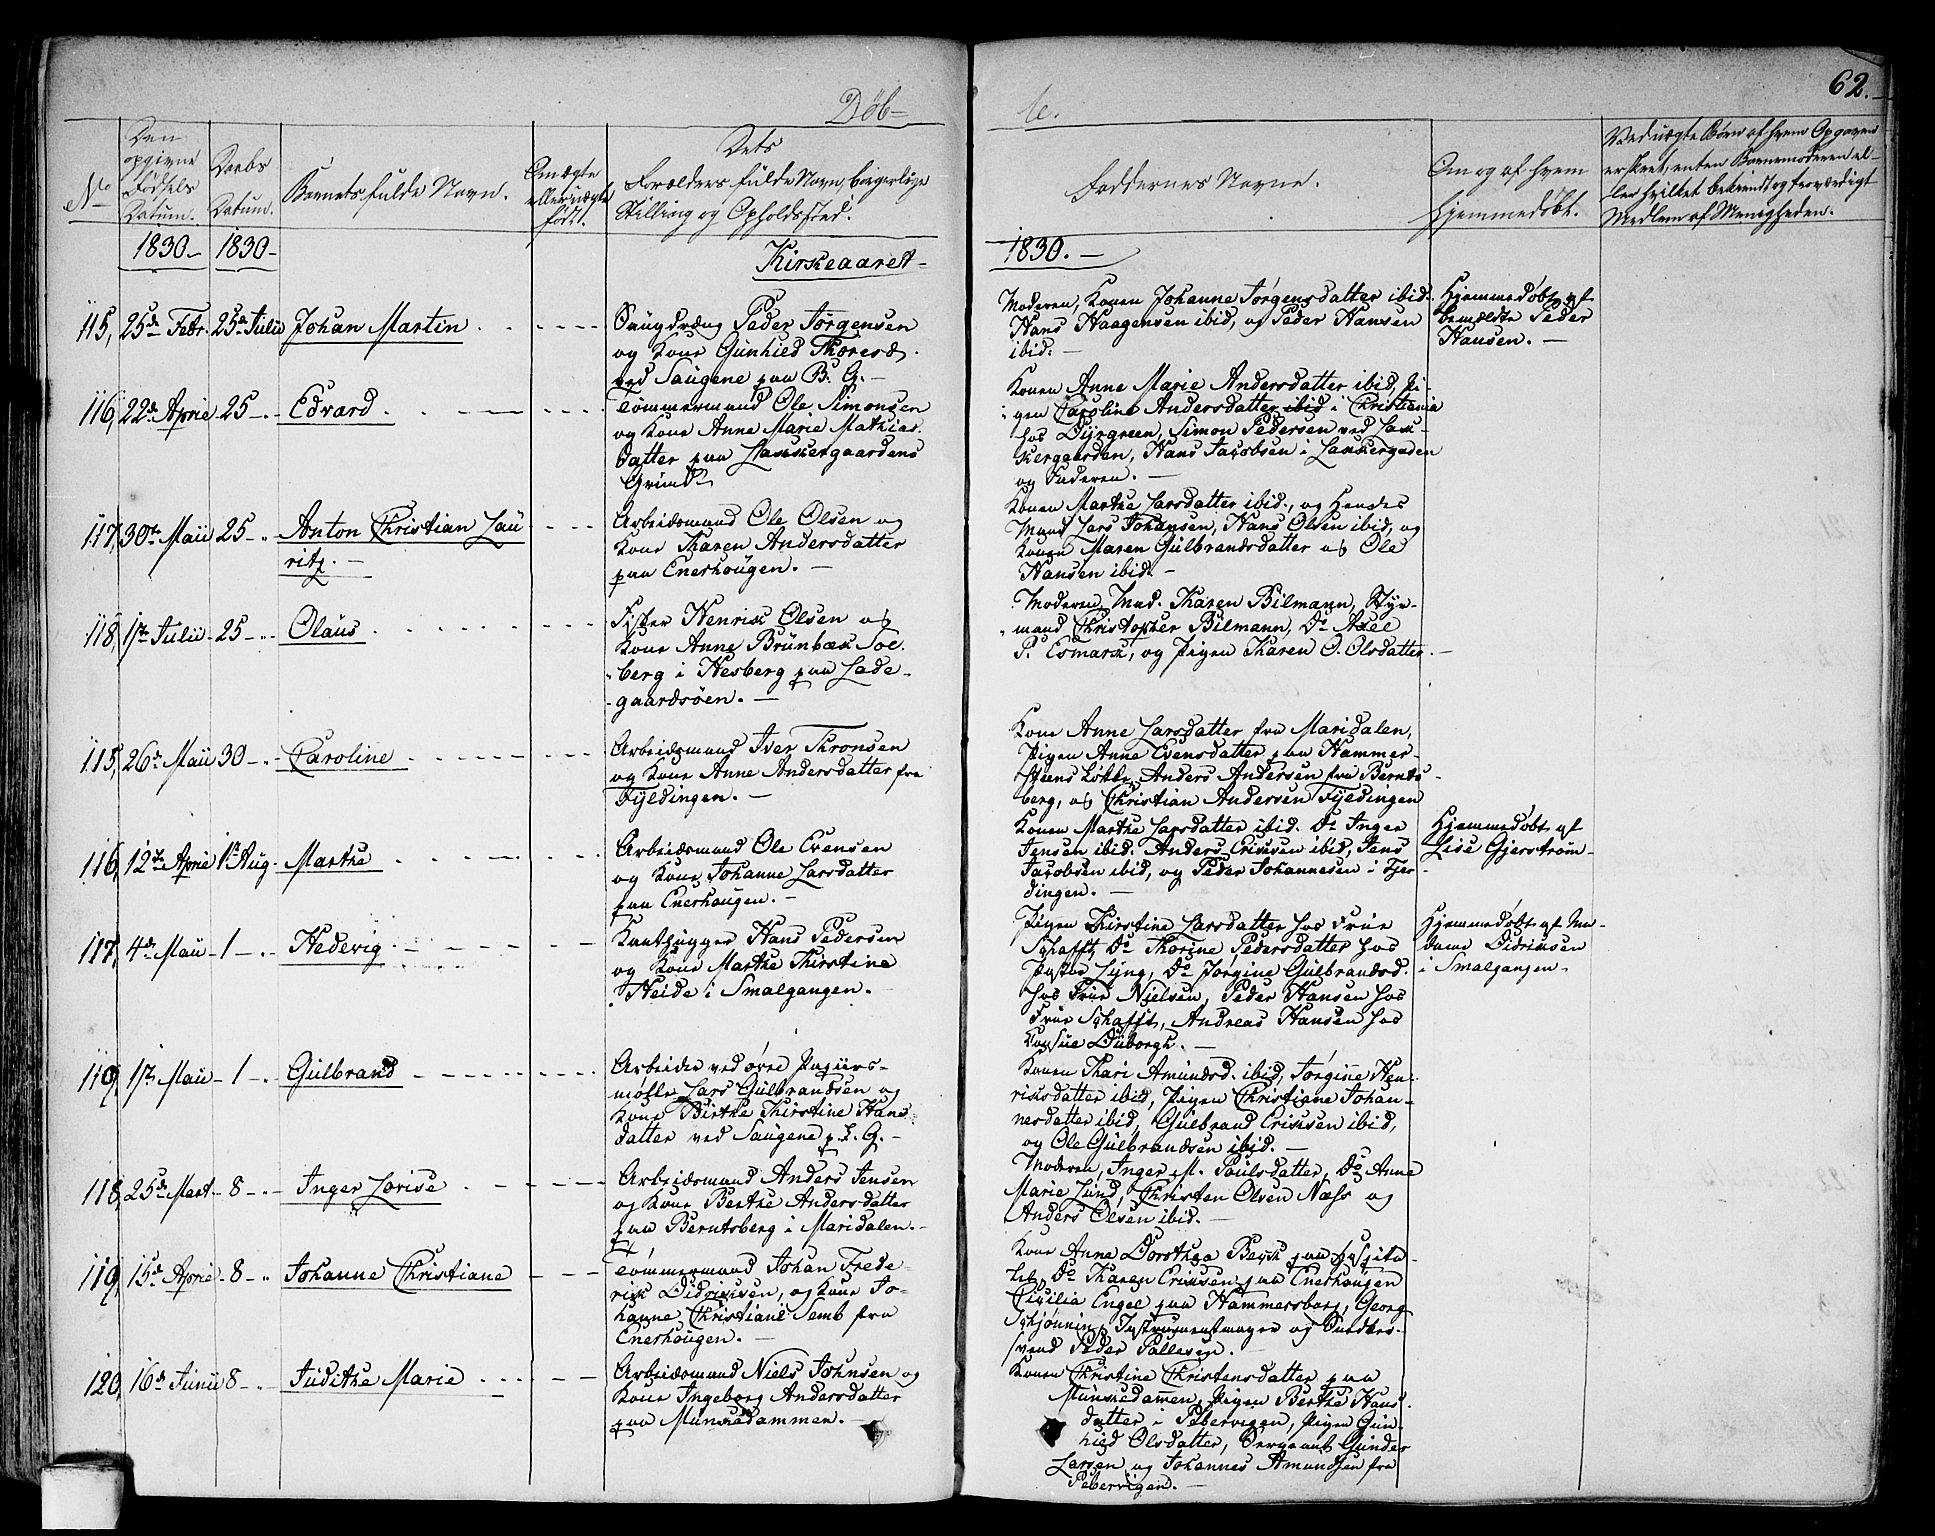 62.
Døb-
te.
No
Den
opgivne
Fødsels
Datum.
Daabs
Datum.
Barnets fulde Navn.
Om ægte
eller uægte
født.
Dets
Forældres fulde Navn, borgerlige
Stilling og Opholdssted.
Faddernes Navne.
Om og af hvem
hjemmedøbt.
Ved uægte Børn af hvem Opgaven
er skeet, enten Barnemoderen el-
ler hvilket bekiendt og troværdigt
Medlem af Menigheden.
1830- 1830-
Kirkeaaret-
1830.-
115, 25de Febr. 25de Julii Johan Martin
Saugdreng Peder Jørgensen
og Kone Gunhild Thoresd.
ved Saugene paa B. G. -
Moderen, Konen Johanne Jørgensdatter ibid.
Hans Haagensen ibid, og Peder Hansen
ibid. -
Hjemmedøbt af
bemældte Peder
Hansen. -
116, 22de April 25 - Edvard
Tømmermand Ole Simonsen
og Kone Anne Marie Mathias-
datter paa Lakkergaardens
Grund
Konen Anne Marie Andersdatter ibid, Pi-
gen Caroline Andersdatter ibid i Christiania
hos Dyrgreen, Simon Pedersen ved Lak-
kergaarden, Hans Jacobsen i Lakkergaden
og Faderen. -
117, 30te Maii 25 - Anton Christian Lau
ritz. -
Arbeidsmand Ole Olsen og
Kone Karen Andersdatter
paa Enerhougen. -
Konen Marthe Larsdatter ibid., og Hendes
Mand Lars Johansen, Hans Olsen ibid, og
Konen Maren Gulbrandsdatter og Ole
Hansen ibid. -
118, 1ste Julii 25 - Olaus
Fisker Henrik Olsen og
Kone Anne Brunbæk Sol-
berg i Hesberg paa Lade-
gaardsøen. -
Moderen, Mad. Karen Bilmann, Styr-
mand Christopher Bilmann, Do Axel
P. Esmark, og Pigen Karen O. Olsdatter. -
115, 26de Maii 30 - Caroline
Arbeidsmand Iver Thronsen
og Kone Anne Andersdatter fra
Fyldingen. -
Kone Anne Larsdatter fra Maridalen,
Pigen Anne Evensdatter paa Hammer-
steens Løkke, Anders Andersen fra Bernts-
berg, og Christian Andersen Fyeldingen
116, 12te April 1ste Aug. Marthe
Arbeidsmand Ole Evensen
og Kone Johanne Larsdatter
paa Enerhaugen. -
Konen Marthe Larsdatter ibid. Do Inger
Jensen ibid. Anders Eriksen ibid, Jens
Jacobsen ibid, og Peder Johannesen i Fjer-
dingen. -
Hjemmedøbt af
Lise Gjerstrøm-
117, 4de Maii - 1 - Hedevig
Kanthugger Hans Pedersen
og Kone Marthe Kirstine
Heide i Smalgangen. -
Pigen Kirstine Larsdatter hos Frue
Schafft, Do Thorine Pedersdatter hos
Pastor Lyng, Do Jorgine Gulbrandsd.
hos Frue Nielsen, Peder Hansen hos
Frue Schafft, Andreas Hansen hos
Consul Duborgh. -
Hjemmedøbt af Ma-
dame Didriksen
i Smalgangen-
119, 1ste Maii - 1 - Gulbrand
Arbeider ved øvre Papiirs-
mølle Lars Gulbrandsen og
Kone Birthe Kirstine Hans
datter ved Saugene p. L. G. -
Konen Kari Amundsd. ibid, Jørgine Hen-
riksdatter ibid, Pigen Christiane Johan-
nesdatter ibid, Gulbrand Eriksen ibid,
og Ole Gulbrandsen ibid. -
118, 25de Mart - 8 - Inger Lovise
Arbeidsmand Anders Jensen
og Kone Berthe Andersdatter
paa Berntsberg i Maridalen. -
Moderen, Inger M. Poulsdatter, Do Anne
Marie Lund, Christen Olsen Næss og
Anders Olsen ibid. -
119, 15de April - 8 - Johanne Christiane
Tømmermand Johan Frede-
rik Didriksen, og Kone Jo-
hanne Christiane Semb fra
Enerhougen. -
Kone Anne Dorothea Berg paa Hospita-
let, Do Karen Eriksen paa Enerhougen
Cicilia Engel paa Hammersborg, Georg
Schjønning Instrumentmager og Snedker-
svend Peder Pallesen. -
120, 16de Junii 8 - Judithe Marie
Arbeidsmand Niels Johnsen og
Kone Ingeborg Andersdatter
paa Munkedammen. -
Konen Christine Christensdatter paa
Munkedammen, Pigen Berthe Hans-
datter i Pebervigen, Pigen Gun-
hild Olsdatter, Sergeant Gunder
Larsen og Johannes Amundsen fra
Pebervigen. -